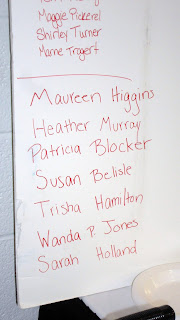 Maggie Pickerel
Shirley Turner
Mame Trigert
Maureen Higgins
Heather Murray
Patricia Blocker
Susan Belisle
Trisha Hamilton
Wanda P. Jones
Sarah Holland